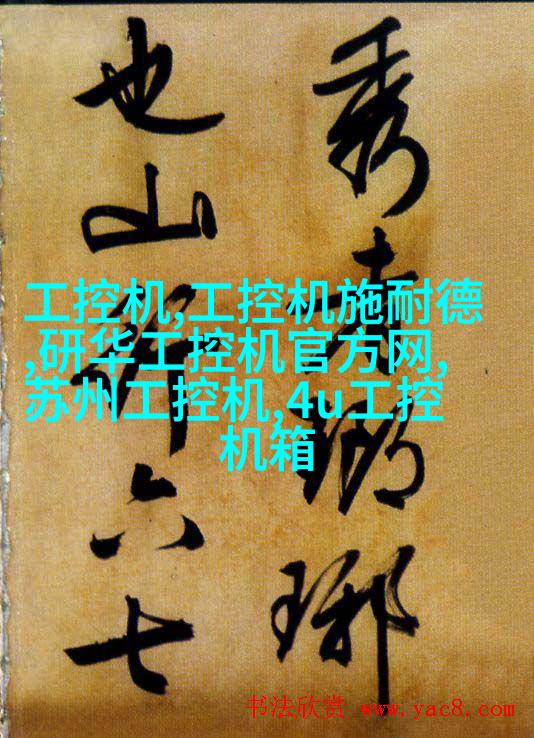 秀者瑯琊
也山行六七
工控机,工控机施耐德
,研华工控机官方网,
苏州工控机,4u工控
机箱
书法欣赏 www.yac8.com